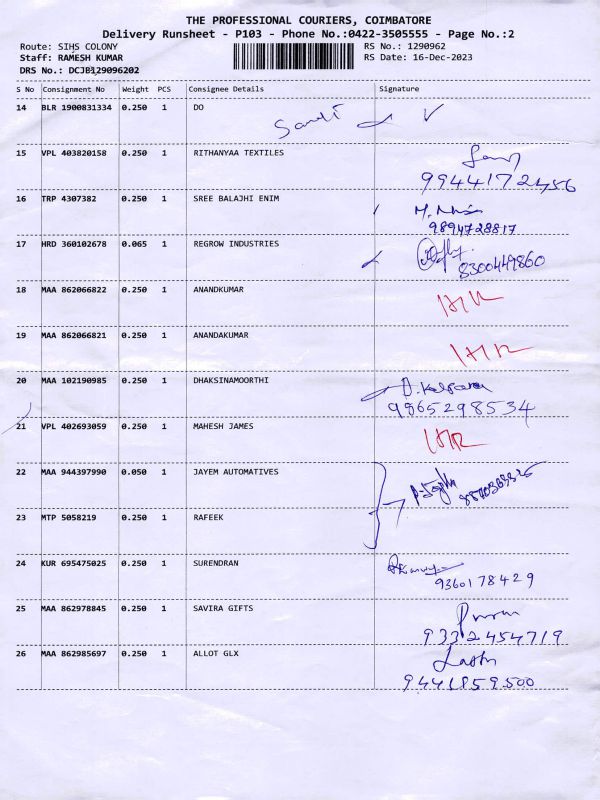 THE PROFESSIONAL COURIERS, COIMBATORE
Delivery Runsheet - P103 - Phone No.:0422-3505555 - Page No.:2
Route: SIHS COLONY RS No.: 1290962
Staff: RAMESH KUMAR RS Date: 16-Dec-2023
DRS No.: DCJB129096202
S No Consignment No Weight PCS Consignee Details Signature
14 BLR 1900831334 0.250 1 DO
15 VPL 403820158 0.250 1 RITHANYAA TEXTILES
9944172456
16 TRP 4307382 0.250 1 SREE BALAJHI ENIM
9894728817
17 HRD 360102678 0.065 1 REGROW INDUSTRIES
8300449860
18 MAA 862066822 0.250 1 ANANDKUMAR
19 MAA 862066821 0.250 1 ANANDAKUMAR
20 MAA 102190985 0.250 1 DHAKSINAMOORTHI
9865298534
21 VPL 402693059 0.250 1 MAHESH JAMES
22 MAA 944397990 0.050 1 JAYEM AUTOMATIVES
23 MTP 5058219 0.250 1 RAFEEK
24 KUR 695475025 0.250 1 SURENDRAN
9360178429
25 MAA 862978845 0.250 1 SAVIRA GIFTS
9332454719
26 MAA 862985697 0.250 1 ALLOT GLX
9441859500